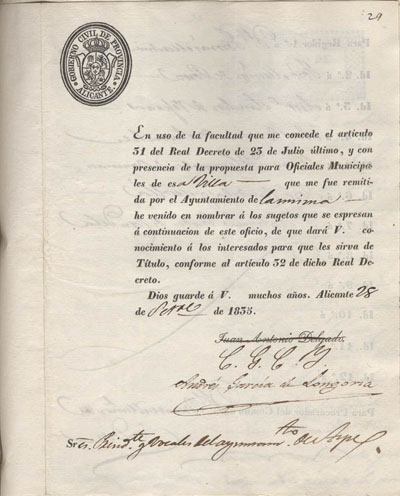 29
GOBIERNO CIVIL DE PROVINCIA
ALICANTE
En uso de la facultad que me concede el artículo
31 del Real Decreto de 23 de Julio último, y con
presencia de la propuesta para Oficiales Municipa-
les de esa Villa que me fue remiti-
da por el Ayuntamiento de la misma
he venido en nombrar á los sugetos que se espresan
á continuacion de este oficio, de que dará V. co-
nocimiento á los interesados para que les sirva de
Título, conforme al artículo 32 de dicho Real De-
creto.
Dios guarde á V. muchos años. Alicante 28
de de 1835.
Juan Antonio Delgado.
C. G. C. Y.
Andrés García de Longoria
Sres. Presidte y Vocales del ayuntamto de